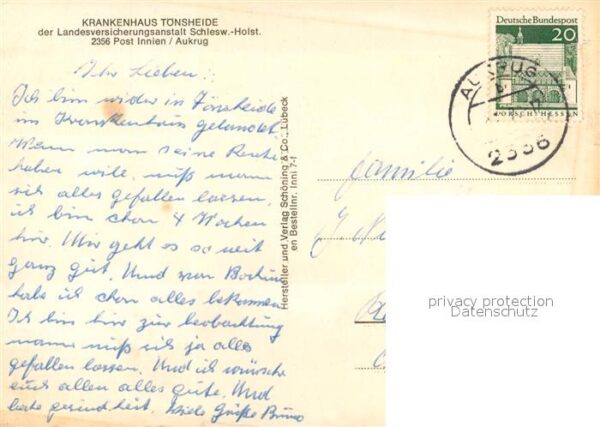 KRANKENHAUS TÖNSHEIDE
der Landesversicherungsanstalt Schlesw.-Holst.
2356 Post Innien / Aukrug
Ihr Lieben:
Ich bin wider in Tönsheide
im Krankenhaus gelandet.
Wann man seine Rente
haben will, muß mann
sich alles gefallen lassen,
ich bin chon 4 Wochen
hir. Mir geht es so weit
ganz gut. Und von Bochum
habe ich chon alles bekommen
Ich bin hir zur beobachtung
mann muß sich ja alles
gefallen lassen. Und ich wünsche
euch allen alles gute. Und
beste gesundheit. Viele Grüße Bruno
Hersteller und Verlag Schöning & Co., Lübeck
en Bestellnr. Inni 7-1
Familie
Deutsche Bundespost
20
LORSCH/HESSEN
AUKRUG
2356
privacy protection
Datenschutz